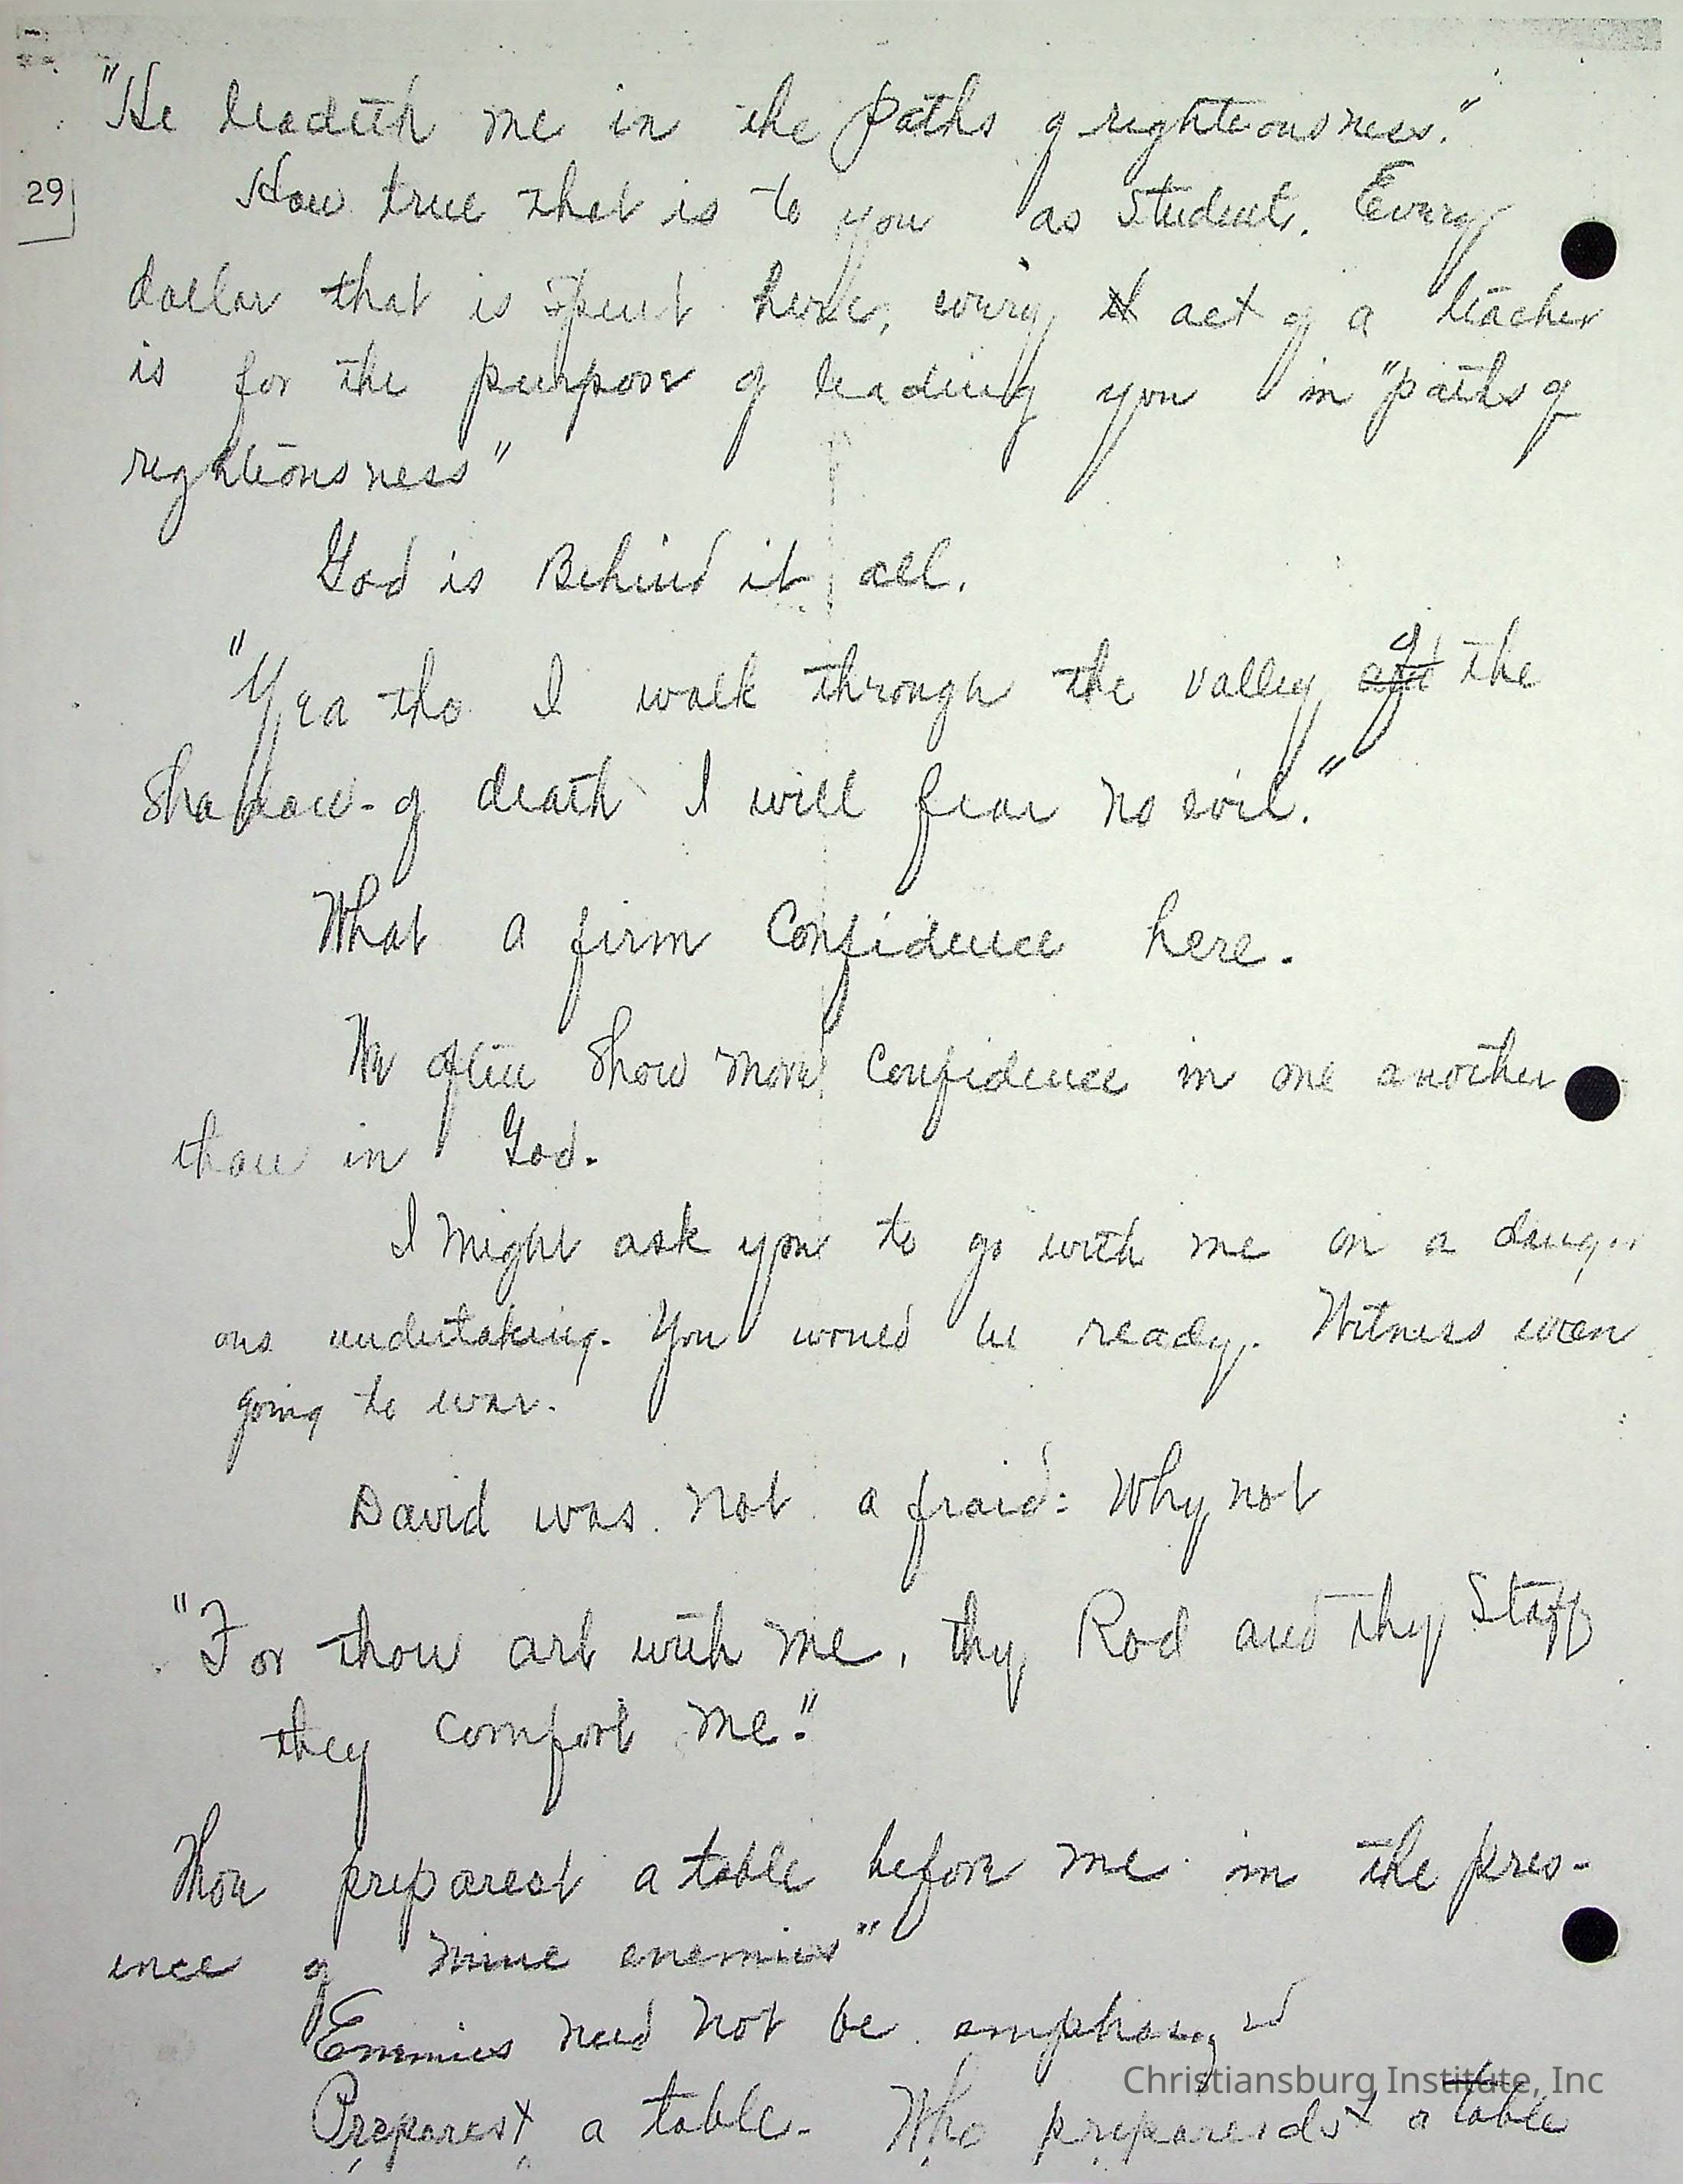 "He leadeth me in the paths of righteousness."
29
How true that is to you as student. Every
dollar that is spent here, every act of a teacher
is for the purpose of leading you in "paths of
righteousness"
God is Behind it all.
"Yea tho I walk through the valley of the
Shadow of death I will fear no evil."
What a firm Confidence here.
We often Show more Confidence in one another
than in God.
I might ask you to go with me on a danger
ous undertaking. You would be ready. Witness even
going to war.
David was not afraid: Why not
"For thou art with me, thy Rod and thy Staff
they comfort me."
Thou preparest a table before me in the pres-
ence of mine enemies"
Enemies need not be emphasized
Preparest a table. Who a table
Christiansburg Institute, Inc